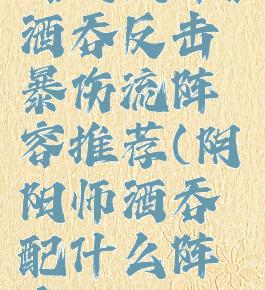 酒吞反击
暴伤流阵
容推荐(阴
阳师酒吞
配什么阵